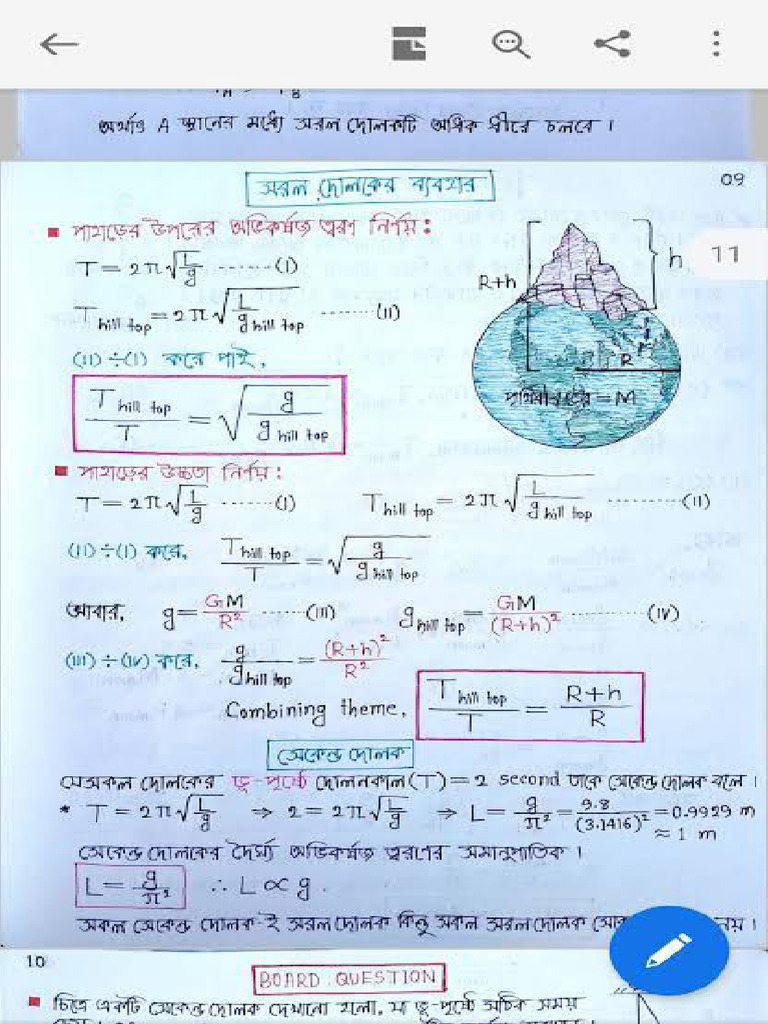 অর্থাৎ A স্থানের মধ্যে সরল দোলকটি অধিক ধীরে চলবে।
সরল দোলকের ব্যবহার
09
11
■ পাহাড়ের উপরের অভিকর্ষজ ত্বরণ নির্ণয়:
T = 2π√(L/g) ........(I)
T hill top = 2π√(L/g hill top) ........(II)
(II) ÷ (I) করে পাই,
T hill top / T = √(g / g hill top)
R+h
h
R
পৃথিবীর ভর = M
■ পাহাড়ের উচ্চতা নির্ণয়:
T = 2π√(L/g) .......(I) T hill top = 2π√(L/g hill top) ..........(II)
(II) ÷ (I) করে, T hill top / T = √(g / g hill top)
আবার, g = GM/R² ......(III) g hill top = GM/(R+h)² ........(IV)
(III) ÷ (IV) করে, g / g hill top = (R+h)²/R²
Combining theme, T hill top / T = R+h / R
সেকেন্ড দোলক
যেসকল দোলকের ভূ-পৃষ্ঠে দোলনকাল (T) = 2 second তাকে সেকেন্ড দোলক বলে।
* T = 2π√(L/g) ⇒ 2 = 2π√(L/g) ⇒ L = g/π² = 9.8/(3.1416)² = 0.9929 m
≈ 1 m
সেকেন্ড দোলকের দৈর্ঘ্য অভিকর্ষজ ত্বরণের সমানুপাতিক।
L = g/π² ∴ L ∝ g.
সকল সেকেন্ড দোলক-ই সরল দোলক কিন্তু সকল সরল দোলক নয়।
10
BOARD QUESTION
■ চিত্রে একটি সেকেন্ড দোলক দেখানো হলো, যা ভূ-পৃষ্ঠে সঠিক সময়